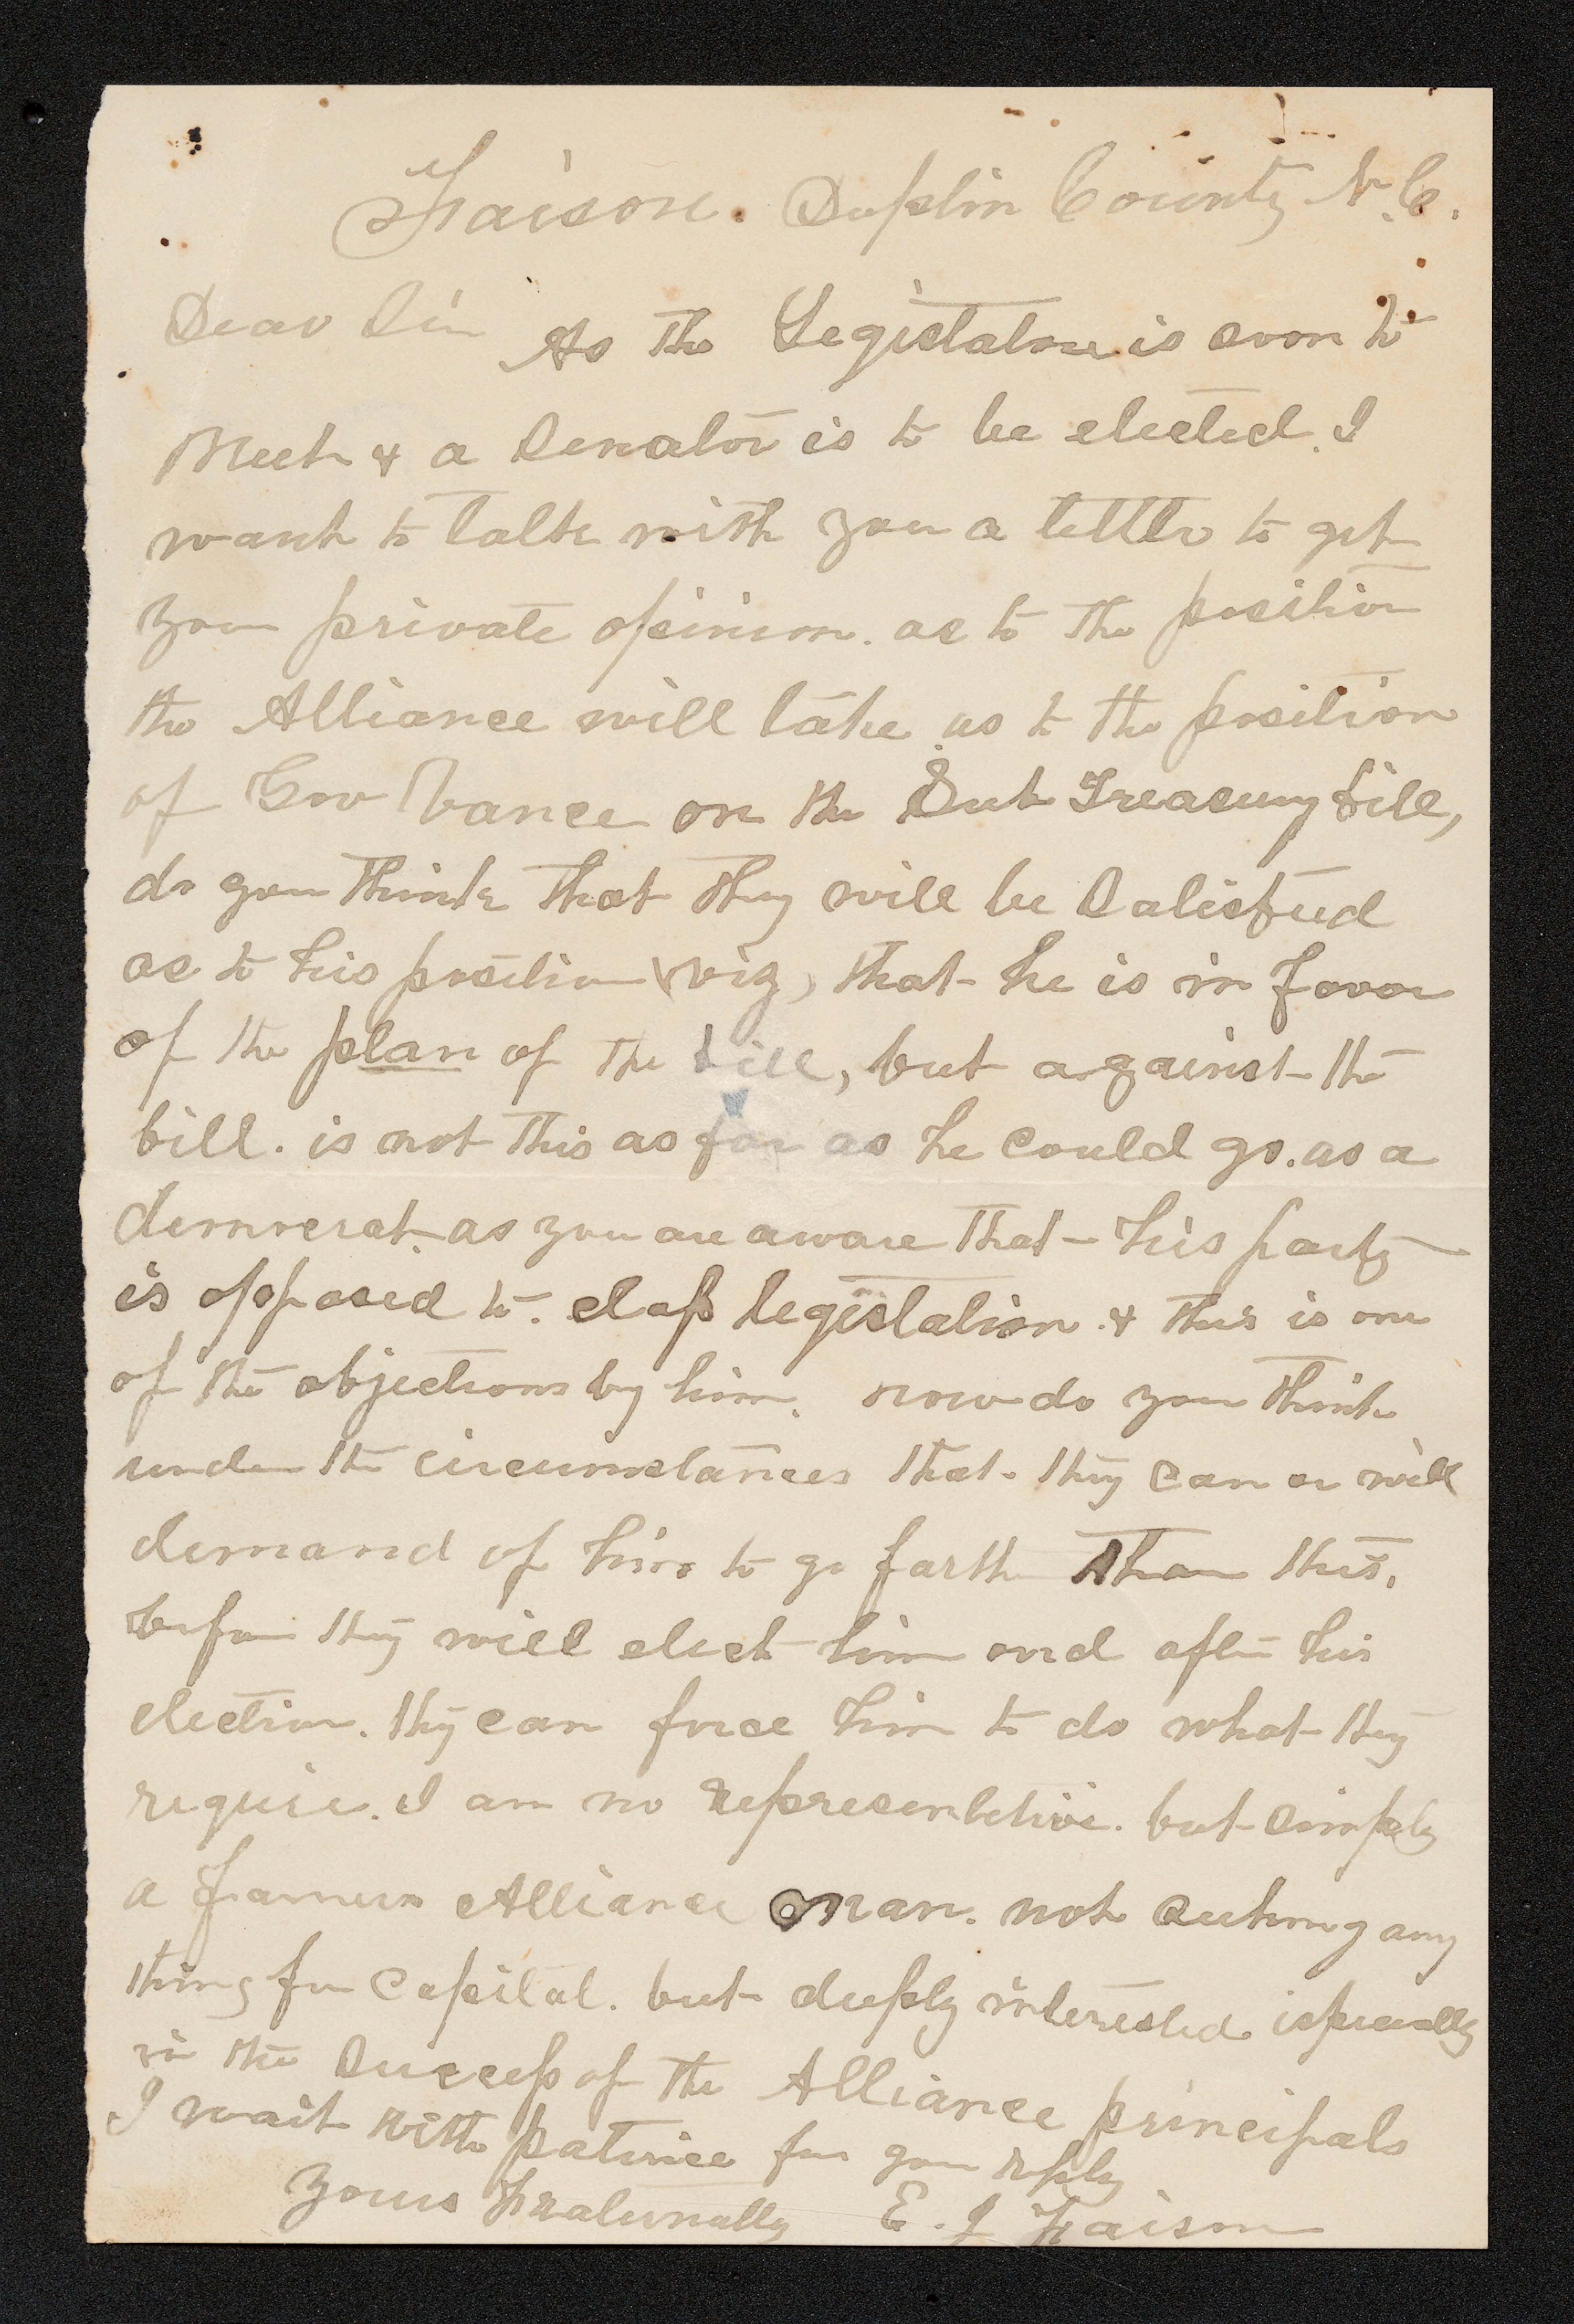 Faison. Duplin County N.C.
Dear Sir As the Legislature is soon to
Meet & a Senator is to be elected. I
want to talk with you a little to get
your private opinion. as to the position
the Alliance will take as to the position
of Gov Vance on the Sub Treasury bill,
do you think that they will be Satisfied
as to his position (viz) that he is in favor
of the plan of the bill, but against the
bill. is not this as far as he could go. as a
democrat. as you are aware that his party
is opposed to. class legislation. & this is one
of the objections by him. now do you think
under the circumstances that. they can or will
demand of him to go farther than this,
before they will elect him and after his
election. they can force him to do what they
require. I am no representative. but simply
a Farmers Alliance man. not seeking any
thing for capital. but deeply interested ispecially
in the success of the Alliance principals
I wait with patience for your reply
Yours Fraternally E. J Faison